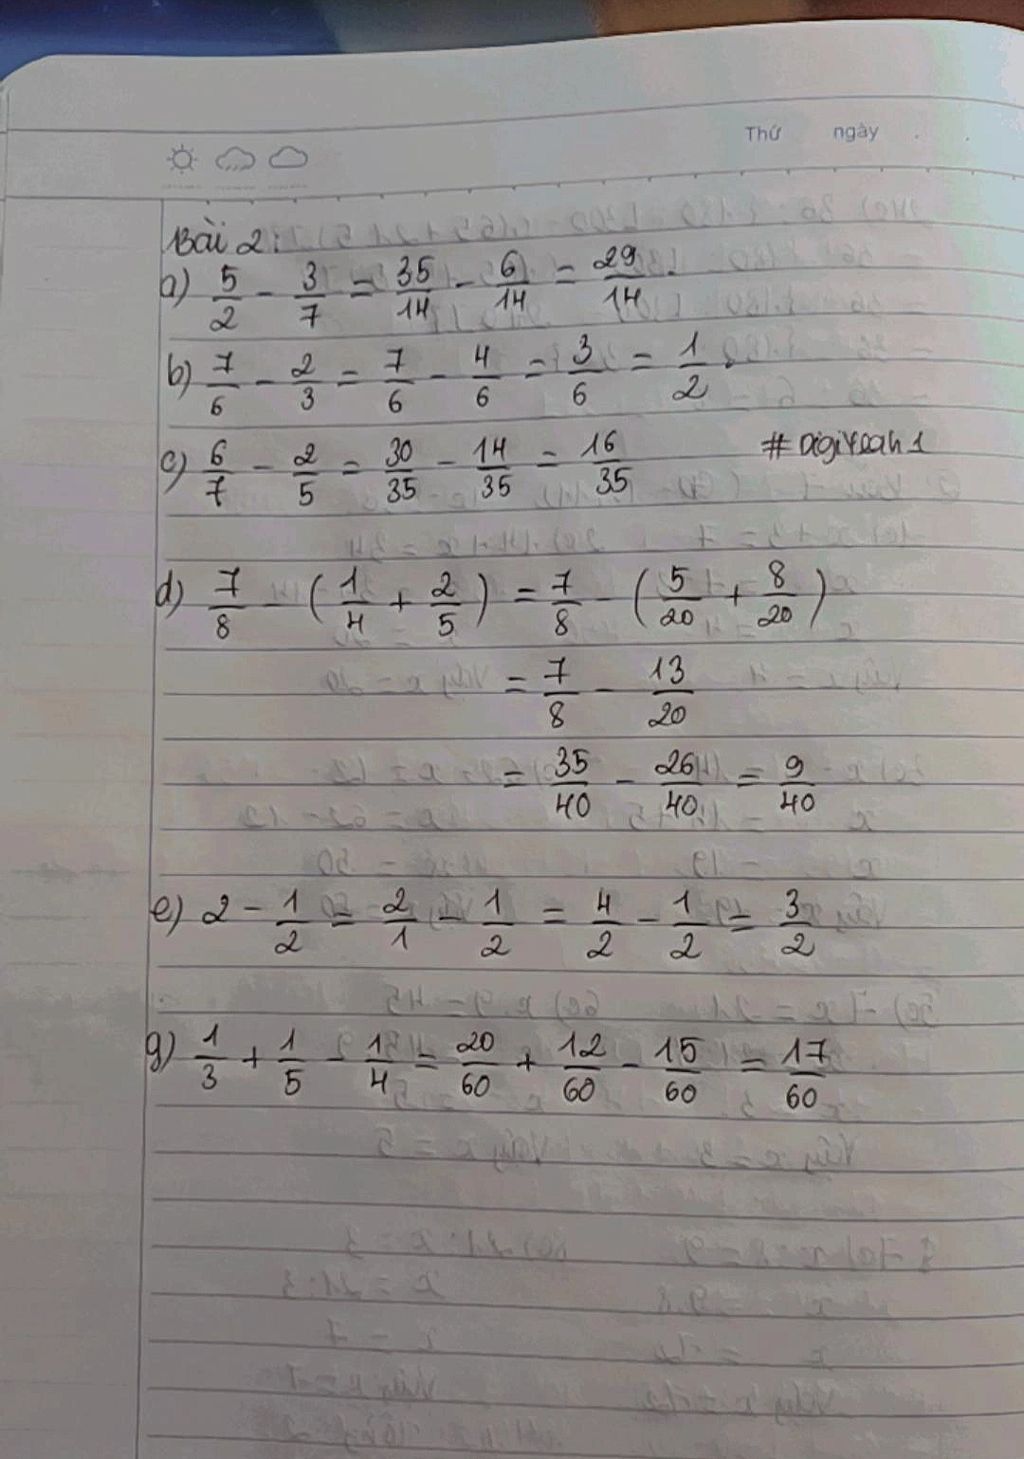 Thứ ngày
Bài 2:
a) 5/2 - 3/7 = 35/14 - 6/14 = 29/14.
b) 7/6 - 2/3 = 7/6 - 4/6 = 3/6 = 1/2.
c) 6/7 - 2/5 = 30/35 - 14/35 = 16/35
# DigiYeah1
d) 7/8 - (1/4 + 2/5) = 7/8 - (5/20 + 8/20)
= 7/8 - 13/20
= 35/40 - 26/40 = 9/40
e) 2 - 1/2 = 2/1 - 1/2 = 4/2 - 1/2 = 3/2
g) 1/3 + 1/5 - 1/4 = 20/60 + 12/60 - 15/60 = 17/60